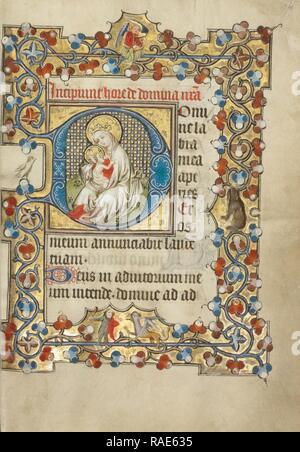 Incipiunt hore de domina n̄rā
Domi
ne la
bia
mea
ape
ries
Et
os
meum annunciabit laude
tuam.
Deus in adiutorium me
um intende. domine ad ad
alamy
Image ID: RAE635
www.alamy.com